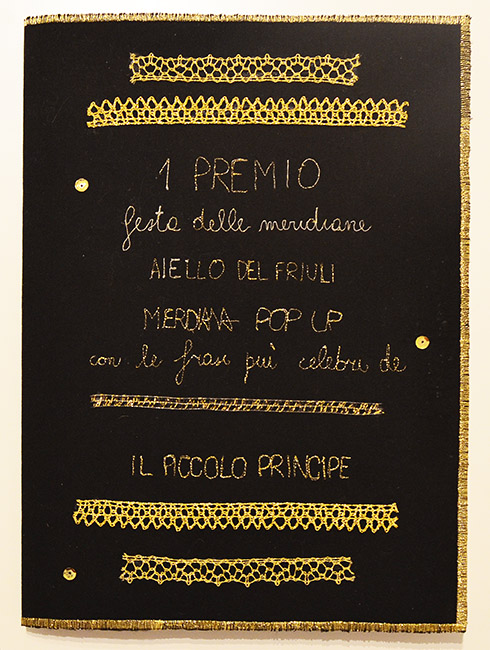 1 PREMIO
festa delle meridiane
AIELLO DEL FRIULI
MERIDIANA POP UP
con le frasi più celebri de
IL PICCOLO PRINCIPE